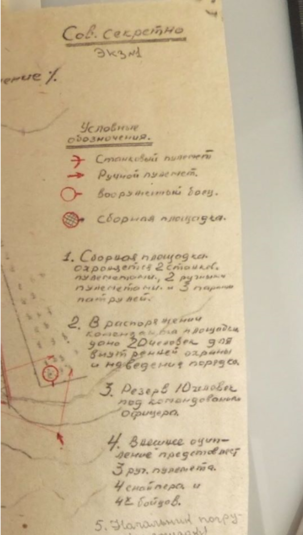 Сов. Секретно
Экз №1
Условные
обозначения.
Станковый пулемет
Ручной пулемет.
Вооруженный боец.
Сборная площадка.
1. Сборная площадка
охроняется 2 станк.
пулеметами, 2 ручным
пулеметами и 3 парно
патрулей.
2. В распоряжении
коменданта площадки
дано 20 человек для
внутренней охраны
и наведения порядка
3. Резерв 10 человек
под командованием
офицера.
4. Внешнее оцеп-
ление представляет
3 руч. пулемета
4 снайпера и
42 бойцов.
5. Начальник погру-